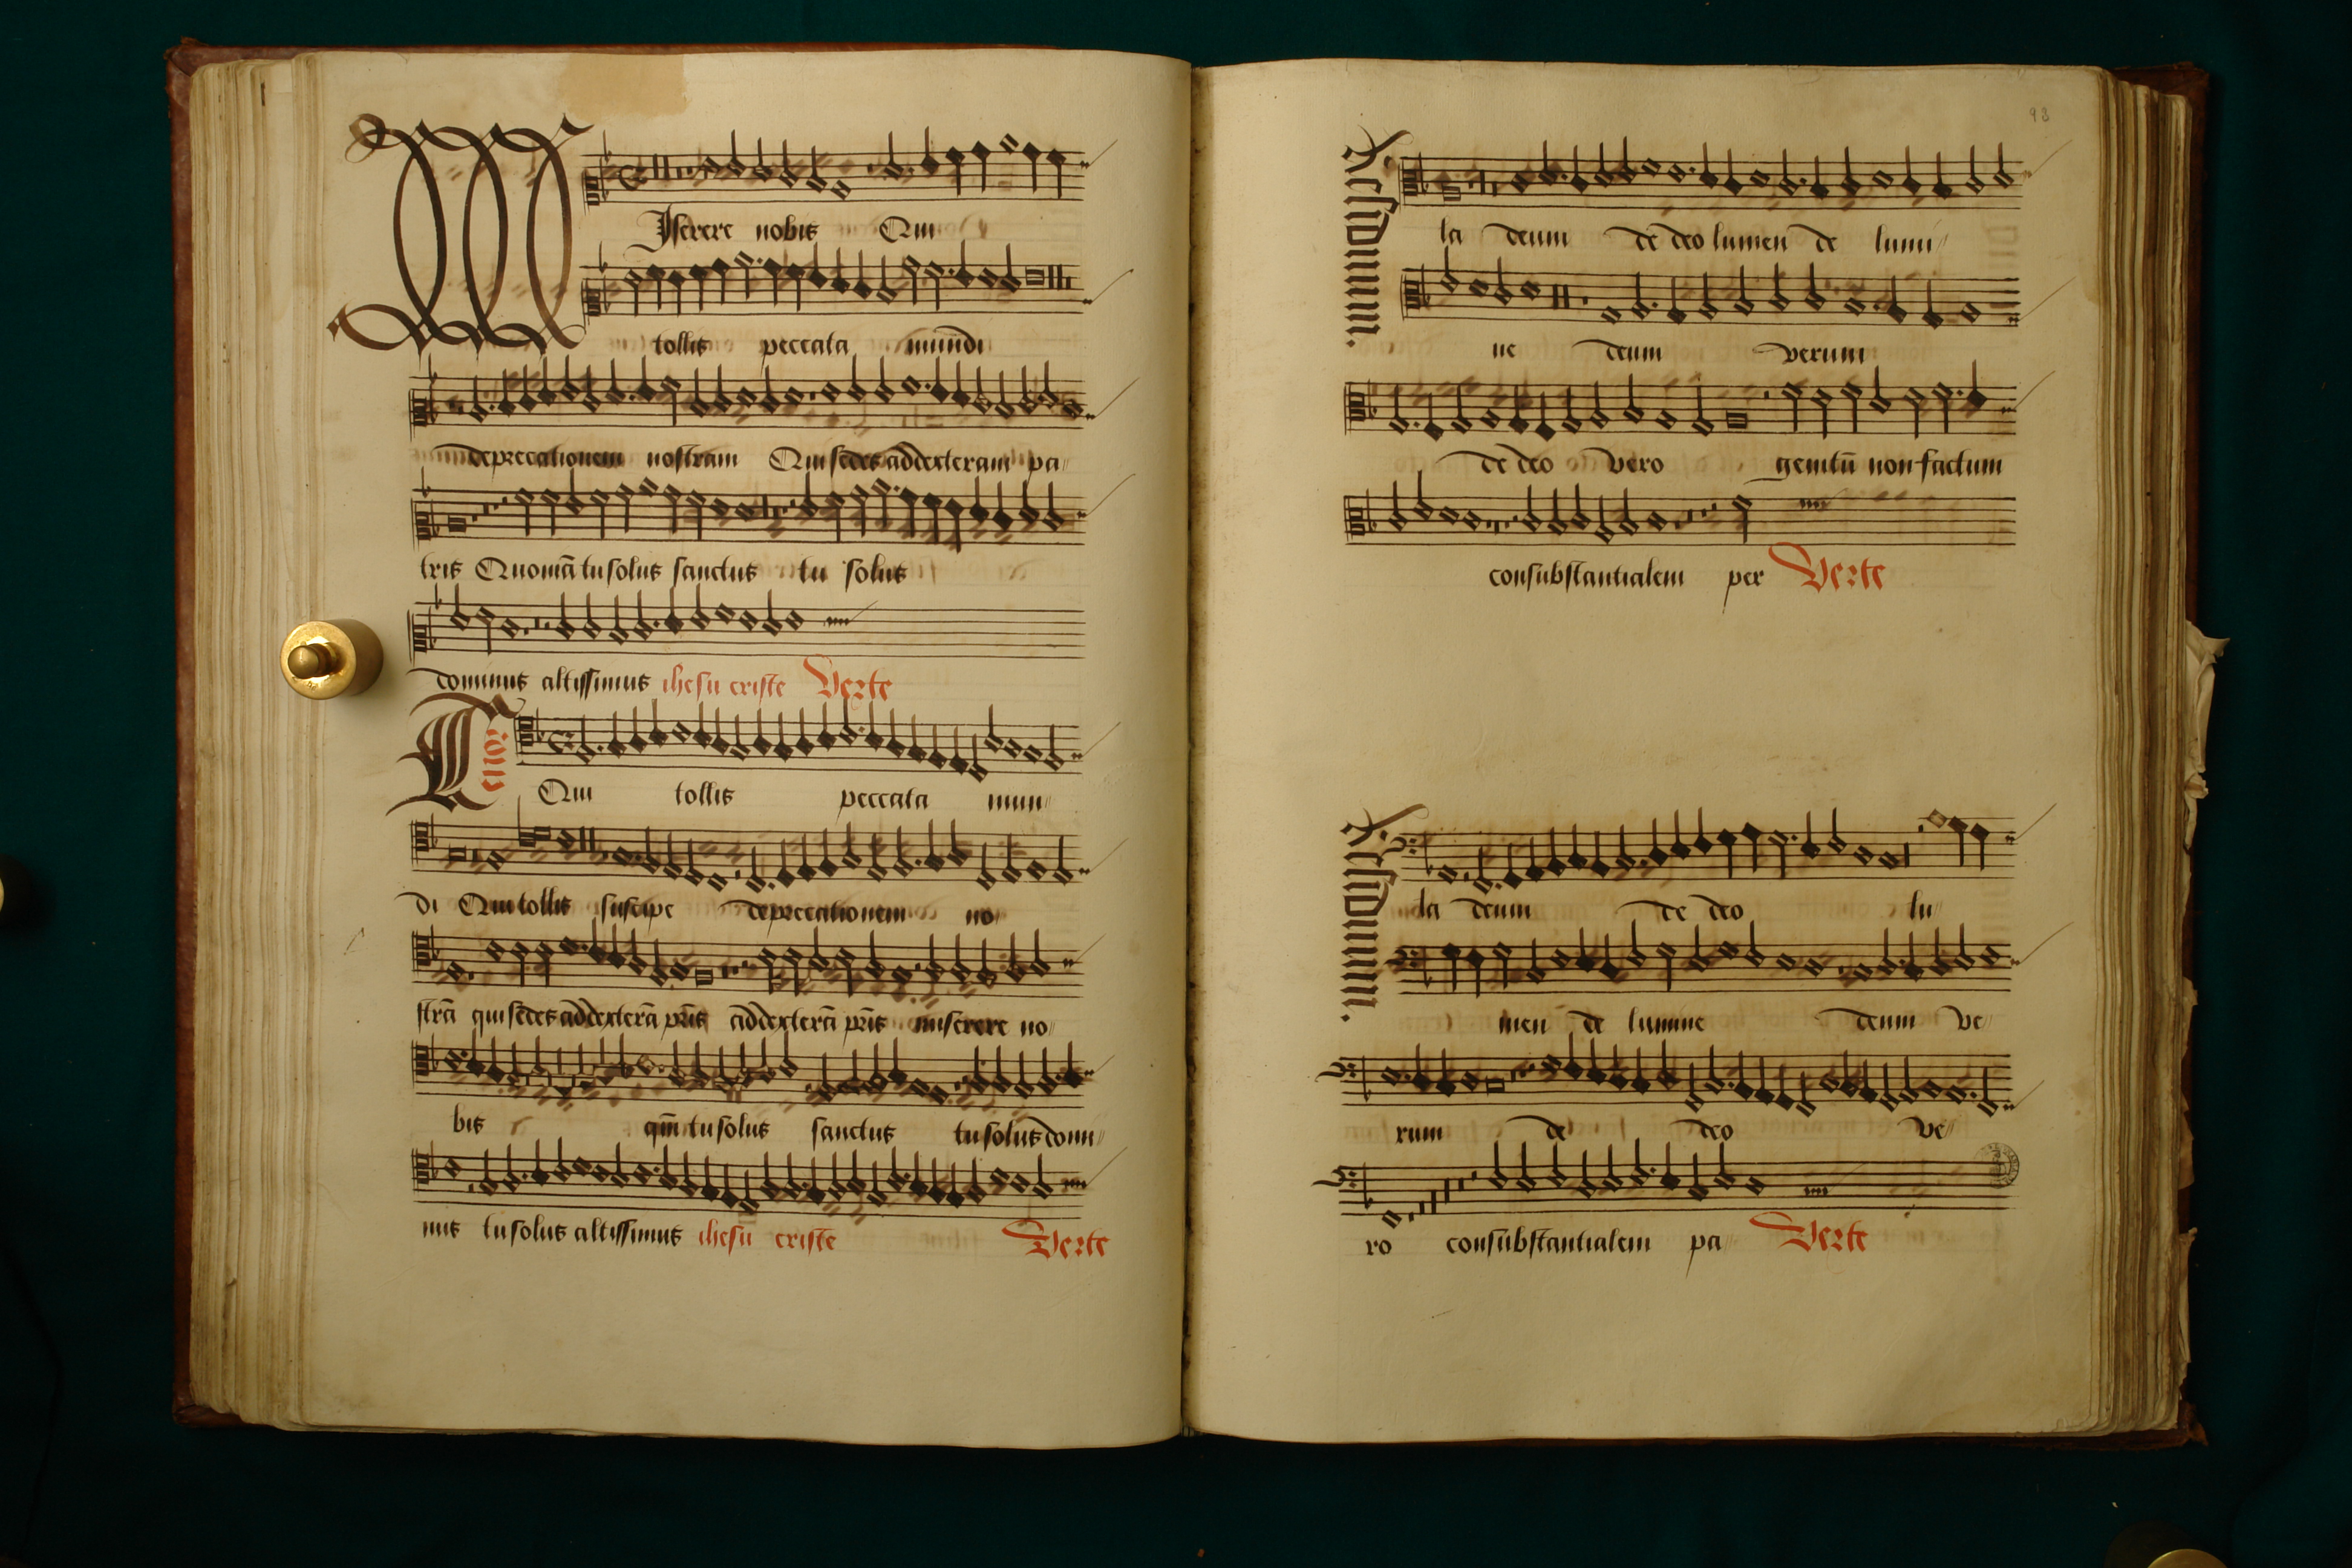 MIserere nobis Qui
tollis peccata mundi
deprecationem nostram Qui sedes ad dexteram pa
tris Quoniā tu solus sanctus tu solus
dominus altissimus ihesu criste Verte
Qui tollis peccata mun
di Qui tollis suscipe deprecationem no
strā qui sedes ad dexterā pr̄is ad dexterā pr̄is miserere no
bis qm̄ tu solus sanctus tu solus domi
nus tu solus altissimus ihesu criste Verte
93
Residuum.
la deum de deo lumen de lumi
ne deum verum
de deo vero genitū non factum
consubstantialem per Verte
Residuum.
la deum de deo lu
men de lumine deum ve
rum de deo ve
ro consubstantialem pa Verte